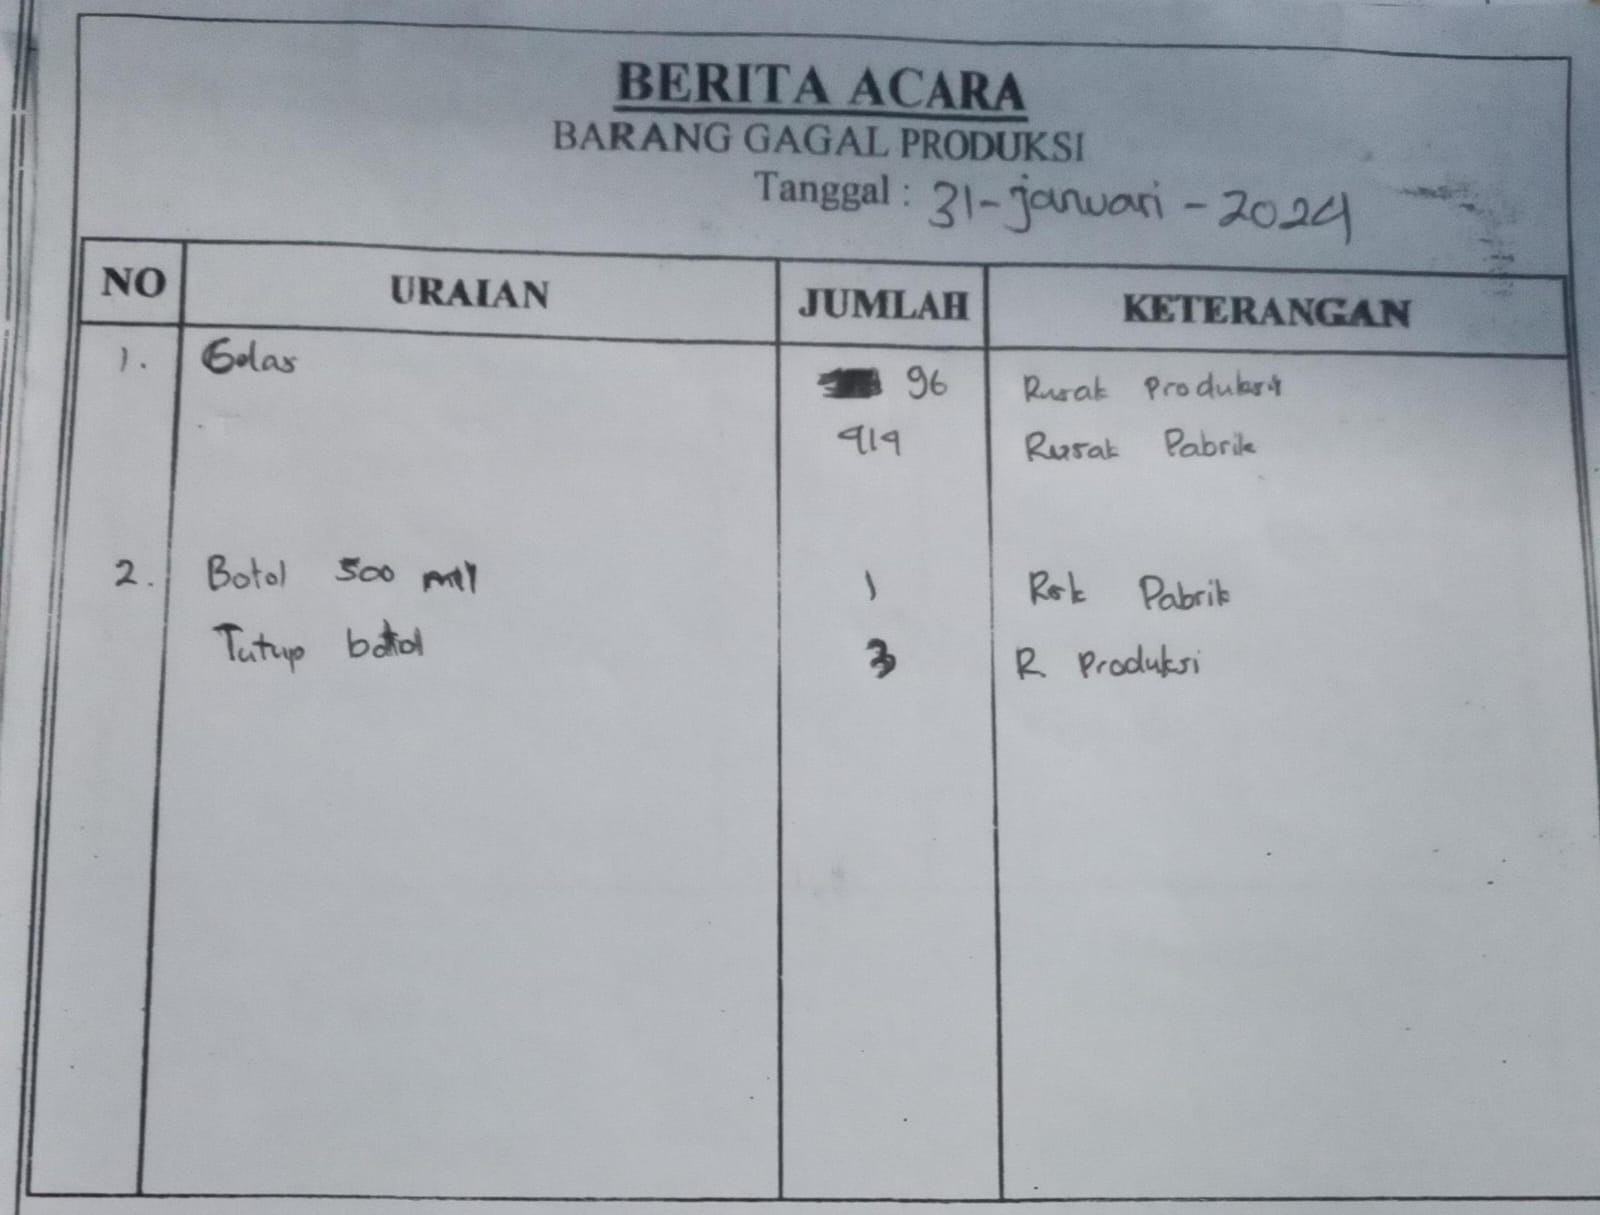 BERITA ACARA
BARANG GAGAL PRODUKSI
Tanggal : 31-januari-2024
NO URAIAN JUMLAH KETERANGAN
1. Gelas 96 Rusak Produksi
919 Rusak Pabrik
2. Botol 500 ml 1 Rsk Pabrik
Tutup botol 3 R Produksi